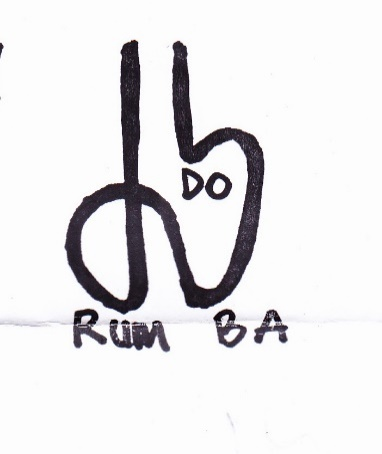 DO
RUM BA